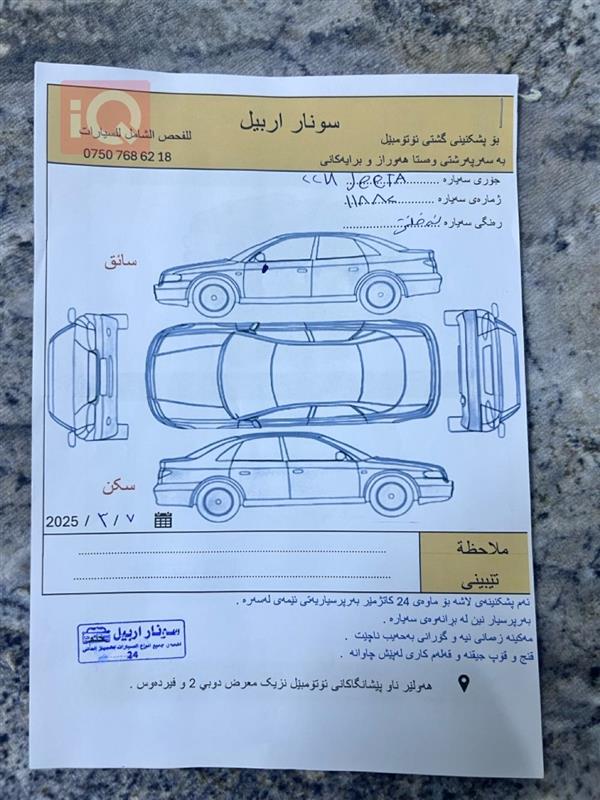 iQ
سونار اربيل
للفحص الشامل للسيارات
0750 768 62 18
بۆ پشکنینی گشتی ئۆتۆمبێل
بە سەرپەرشتی وەستا هەوراز و برایەکانی
جۆری سەیارە ................
ژمارەی سەیارە ................
رەنگی سەیارە ................
سائق
سكن
2025 / ٣ / ٧
ملاحظة
تێبینی
ئەم پشکنینەی لاشە بۆ ماوەی 24 کاتژمێر بەرپرسیاریەتی ئێمەی لەسەرە .
بەرپرسیار نین لە برانەوەی سەیارە .
مەکینە زەمانی نیە و گۆرانی بەحەیب ناچێت .
قنج و قۆپ جیقنە و قەلەم کاری لەپێش چاوانە .
سونار اربيل
24
هەولێر ناو پێشانگاکانی ئۆتۆمبێل نزیک معرض دوبي 2 و فیردەوس .